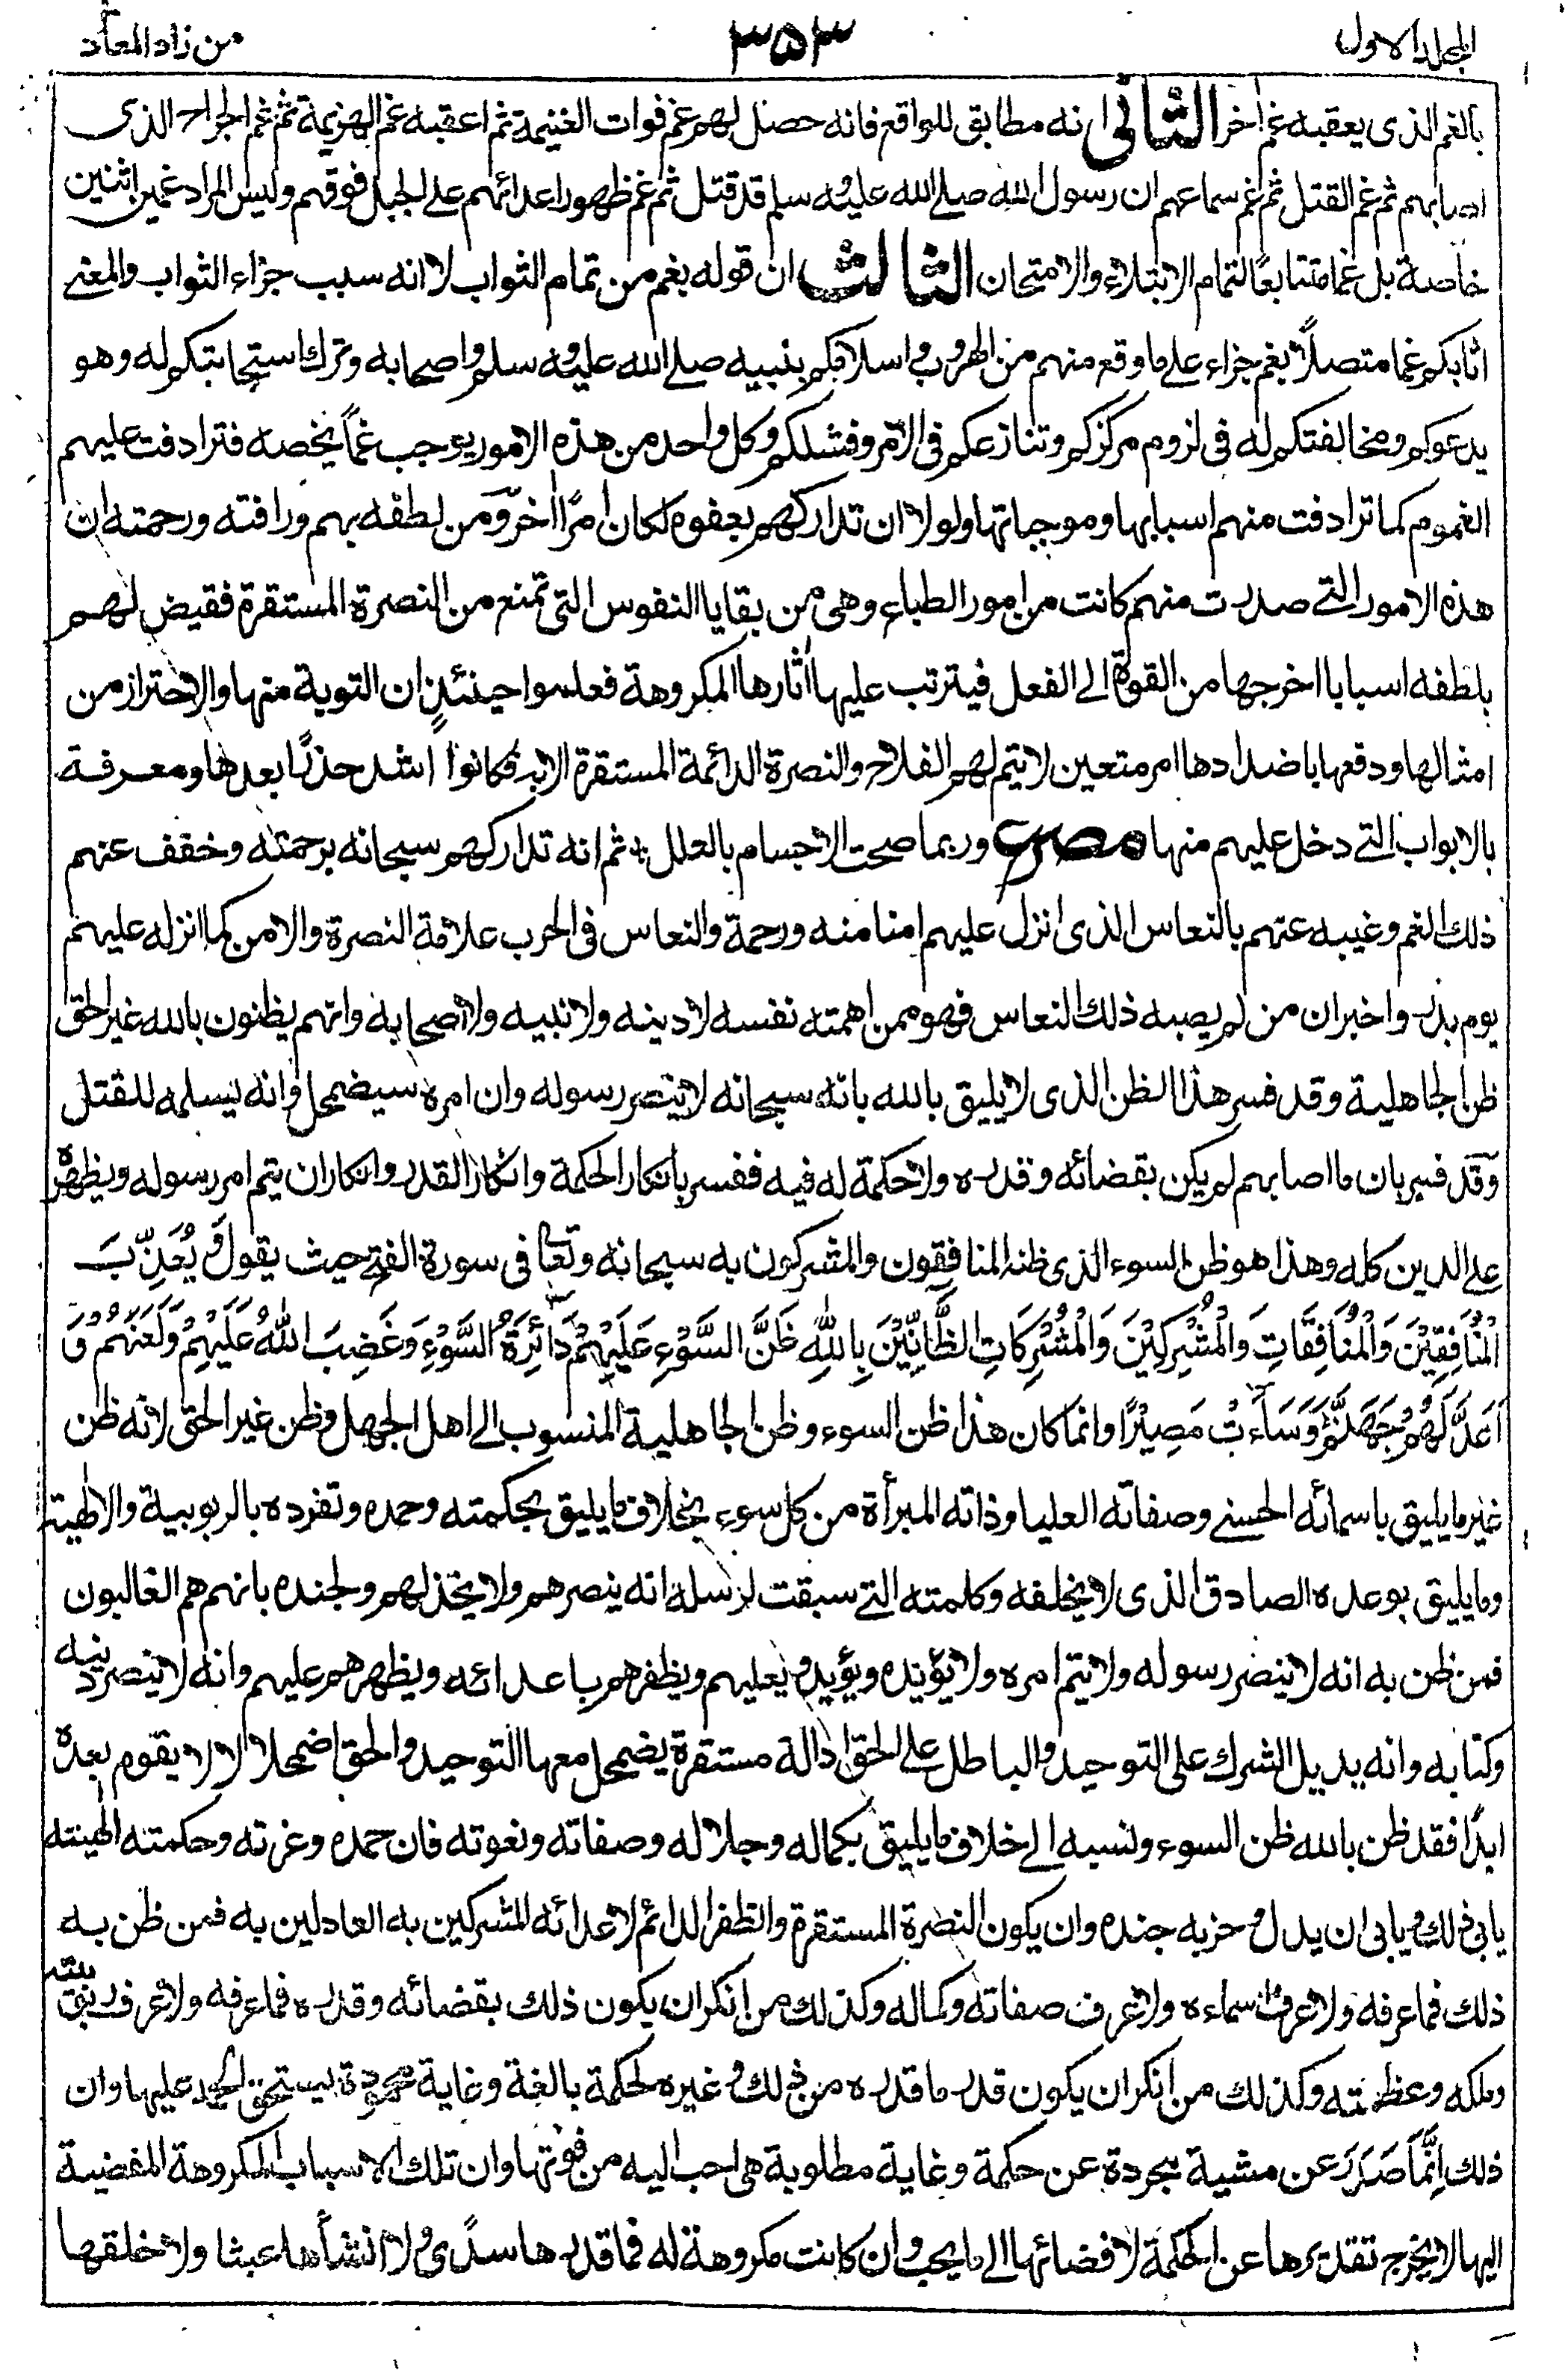 المجلد الاول
٣٥٣
من زاد المعاد
بالغم الذى يعقبه غم اخر الثانى انه مطابق للواقع فانه حصل لهم غم فوات الغنيمة ثم اعقبه غم الهزيمة ثم غم الجراح الذى
اصابهم ثم غم القتل ثم غم سماعهم ان رسول الله صلے الله عليه وسلم قد قتل ثم غم ظهور اعدائهم على الجبل فوقهم وليس المراد غمين اثنين
خاصة بل غما متتابعًا لتمام الابتلاء والامتحان الثالث ان قوله بغم من تمام الثواب لا انه سبب جزاء الثواب والمعنى
اثابكم غما متصلاً بغم جزاء على ما وقع منهم من الهروب واسلامكم بنبيه صلے الله عليه وسلم واصحابه وترك استجابتكم له وهو
يدعوكم ومخالفتكم له فى لزوم مركزكم وتنازعكم فى الامر وفشلكم وكل واحد من هذه الامور يوجب غماً يخصه فترادفت عليهم
الغموم كما ترادفت منهم اسبابها وموجباتها ولولا ان تداركهم بعفوه لكان امرًا اخر ومن لطفه بهم ورافته ورحمته ان
هذه الامور التے صدرت منهم كانت من امور الطباع وهى من بقايا النفوس التى تمنع من النصرة المستقرة فقيض لهم
بلطفه اسبابا اخرجها من القوة الے الفعل فيترتب عليها اثارها المكروهة فعلموا حينئذٍ ان التوبة منها والاحتراز من
امثالها ودفعها باضدادها امر متعين لا يتم لهم الفلاح والنصرة الدائمة المستقرة الا به فكانوا اشد حذرًا بعدها ومعرفة
بالابواب التے دخل عليهم منها مصرع وربما صحت الاجسام بالعلل ثم انه تداركهم سبحانه برحمته وخفف عنهم
ذلك الغم وغيبه عنهم بالنعاس الذى انزل عليهم امنا منه ورحمة والنعاس فى الحرب علامة النصرة والامن كما انزله عليهم
يوم بدر واخبر ان من لم يصبه ذلك النعاس فهو ممن اهمته نفسه لا دينه ولا نبيه ولا اصحابه وانهم يظنون بالله غير الحق
ظن الجاهلية وقد فسر هذا الظن الذى لا يليق بالله بانه سبحانه لا ينصر رسوله وان امره سيضمحل وانه يسلمه للقتل
وقد فسر بان ما اصابهم لم يكن بقضائه وقدره ولا حكمة له فيه ففسر بانكار الحكمة وانكار القدر وانكار ان يتم امر رسوله ويظهره
على الدين كله وهذا هو ظن السوء الذى ظنه المنافقون والمشركون به سبحانه وتعا فى سورة الفتح حيث يقول وَيُعَذِّبَ
الْمُنَافِقِيْنَ وَالْمُنَافِقَاتِ وَالْمُشْرِكِيْنَ وَالْمُشْرِكَاتِ الظَّانِّيْنَ بِاللهِ ظَنَّ السَّوْءِ عَلَيْهِمْ دَائِرَةُ السَّوْءِ وَغَضِبَ اللهُ عَلَيْهِمْ وَلَعَنَهُمْ وَ
اَعَدَّ لَهُمْ جَهَنَّمَ وَسَاءَتْ مَصِيْرًا وانما كان هذا ظن السوء وظن الجاهلية المنسوب الے اهل الجهل وظن غير الحق لانه ظن
غير ما يليق باسمائه الحسنے وصفاته العليا وذاته المبرأة من كل سوء بخلاف ما يليق بحكمته وحمده وتفرده بالربوبية والالهية
وما يليق بوعده الصادق الذى لا يخلفه وكلمته التے سبقت لرسله انه ينصرهم ولا يخذلهم ولجنده بانهم هم الغالبون
فمن ظن به انه لا ينصر رسوله ولا يتم امره ولا يؤيده ويؤيد حزبه ويعليهم ويظفرهم باعدائه ويظهرهم عليهم وانه لا ينصر دينه
وكتابه وانه يديل الشرك على التوحيد والباطل على الحق ادالة مستقرة يضمحل معها التوحيد والحق اضمحلالا لا يقوم بعده
ابدًا فقد ظن بالله ظن السوء ونسبه الے خلاف ما يليق بكماله وجلاله وصفاته ونعوته فان حمده وعزته وحكمته الهيته
يابى ذلك ويابى ان يذل حزبه جنده وان يكون النصرة المستقرة والظفر الدائم لاعدائه المشركين به العادلين به فمن ظن به
ذلك فما عرفه ولا عرف اسماءه ولا عرف صفاته وكماله وكذلك من انكر ان يكون ذلك بقضائه وقدره فما عرفه ولا عرف ربوبيته
وملكه وعظمته وكذلك من انكر ان يكون قدر ما قدره من ذلك وغيره لحكمة بالغة وغاية محمودة يستحق الحمد عليها وان
ذلك اِنَّمَا صَدَرَ عن مشية مجردة عن حكمة وغاية مطلوبة هى احب اليه من فوتها وان تلك الاسباب المكروهة المفضية
اليها لا يخرج تقديرها عن الحكمة لافضائها الے ما يحب وان كانت مكروهة له فما قدرها سدًى ولا انشأها عبثا ولا خلقها